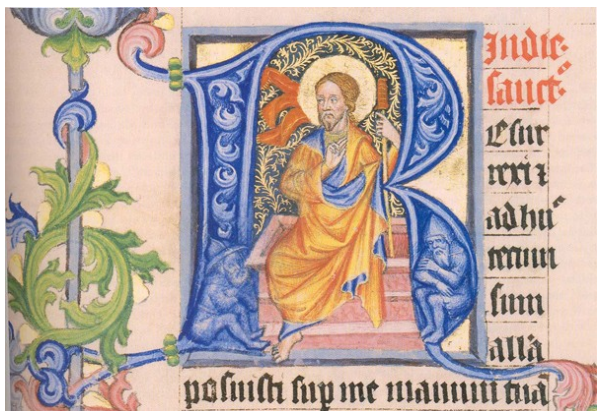 R
Indie·
sanct᷑
esur
rexi ⁊
adhu᷑
tecum
sum
all̄a
posuisti sup me manum tuā